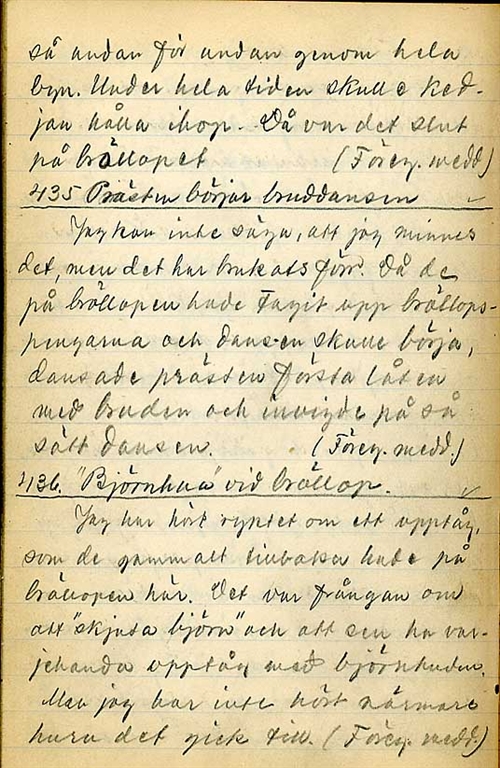 så undan för undan genom hela
byn. Under hela tiden skulle ked-
jan hålla ihop. Då var det slut
på bröllopet (Föreg. medd.)
435 Prästen börjar bruddansen
Jag kan inte säga, att jag minnes
det, men det har brukats förr. Då de
på bröllopen hade tagit upp bröllops-
pengarna och dansen skulle börja,
dansade prästen första låten
med bruden och invigde på så
sätt dansen. (Föreg. medd.)
436. "Björnhua" vid bröllop.
Jag har hört ryktet om ett upptåg,
som de gammalt tillbaka hade på
bröllopen här. Det var frågan om
att "skjuta björn" och att sen ha var-
jehanda upptåg med björnhuden.
Men jag har inte hört närmare
huru det gick till. (Föreg. medd.)